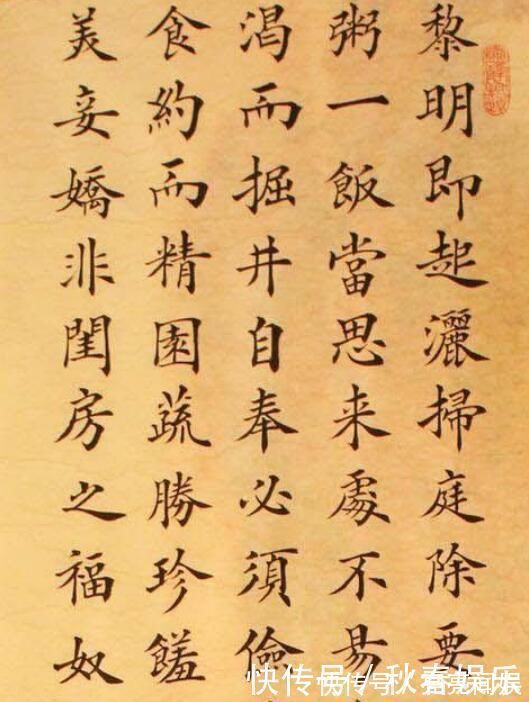 黎明即起灑掃庭除要
粥一飯當思来處不易
渴而掘井自奉必須儉
食約而精園蔬勝珍饈
美妾嬌非閨房之福奴
快传号/秋春娱乐